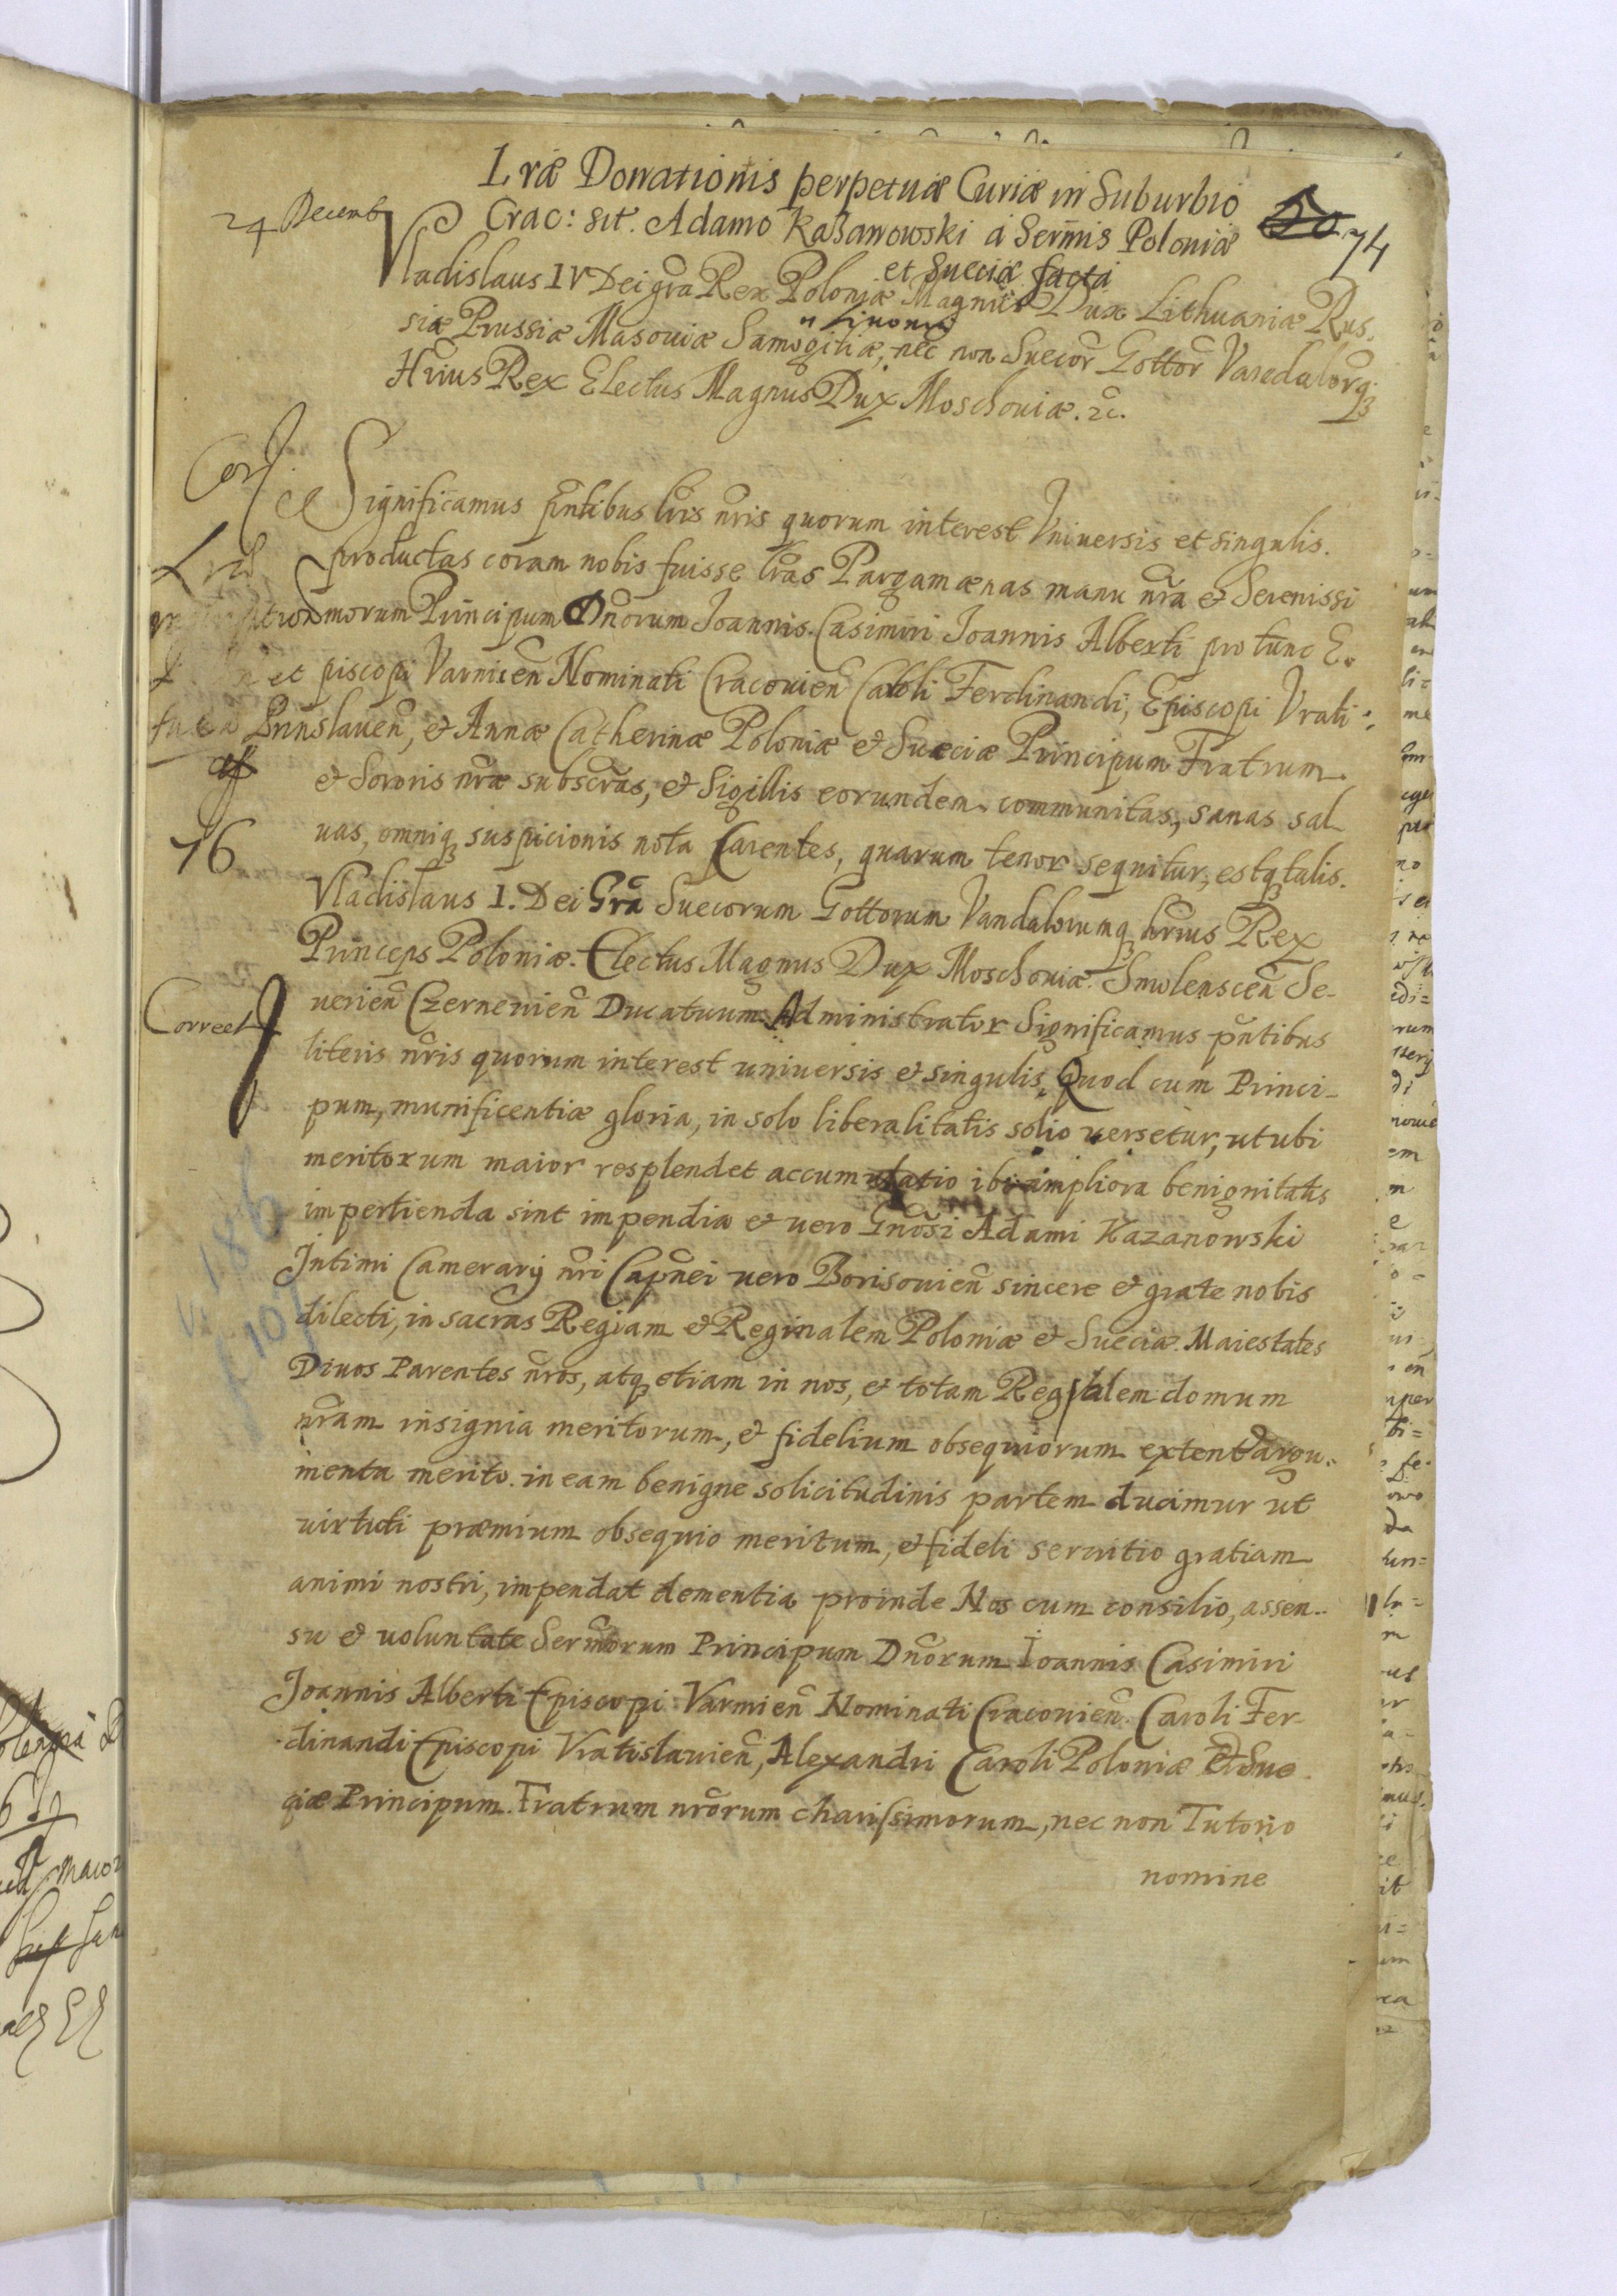 Lræ Donationis perpetuæ Curiæ in Suburbio
24 Decemb
Crac: sit. Adamo Kasanowski a Sermis Poloniæ
74
et Sueciæ facta
Vladislaus IV Dei gra Rex Poloniæ Magnus Dux Lithuaniæ Rus.
siæ Prussiæ Masouiæ Samogitiæ, Liuoniæ nec non Suecor Gottor Vandalorq
Hrius Rex Electus Magnus Dux Moschouiæ. &c.
Significamus pntibus lris nris quorum interest Vniuersis et singulis.
productas coram nobis fuisse lras Pargamænas manu nra & Serenissi
morum Principum Dnorum Joannis Casimiri Joannis Alberti pro tunc E.
piscopi Varmien Nominati Cracouien Caroli Ferdinandi, Episcopi Vrati
slauen, & Annæ Catherinæ Poloniæ & Sueciæ Principum Fratrum
& Sororis nræ subscras, & Sigillis eorundem communitas, sanas sal
uas, omniq suspicionis nota Carentes, quarum tenor sequitur, estq talis.
76
Vladislaus I. Dei Gra Suecorum Gottorum Vandalorumq hrius Rex
Princeps Poloniæ. Electus Magnus Dux Moschouiæ. Smolenscen Se-
uerien Czerneuien Ducatuum Administrator Significamus pntibus
Correct
literis nris quorum interest uniuersis & singulis, Quod cum Princi-
pum, munificentiæ gloria, in solo liberalitatis solio uersetur, ut ubi
meritorum maior resplendet accumulatio ibi ampliora benignitatis
impertienda sint impendia & uero Gnosi Adami Kazanowski
Intimi Camerarij nri Capnei uero Borisouien sincere & grate nobis
dilecti, in sacras Regiam & Reginalem Poloniæ & Sueciæ. Maiestates
Diuos Parentes nros, atq etiam in nos, & totam Regalem domum
nram insignia meritorum, & fidelium obsequiorum extent argu-
menta merito. in eam benigne solicitudinis partem ducimur ut
uirtuti præmium obsequio meritum, & fideli seruitio gratiam
animi nostri, impendat clementia proinde Nos cum consilio, assen-
su & uoluntate Sermorum Principum Dnorum Ioannis Casimiri
Joannis Alberti Episcopi Varmien Nominati Cracouien. Caroli Fer-
dinandi Episcopi Vratislauien, Alexandri Caroli Poloniæ & Sue
ciæ Principum. Fratrum nrorum charissimorum, nec non Tutorio
nomine